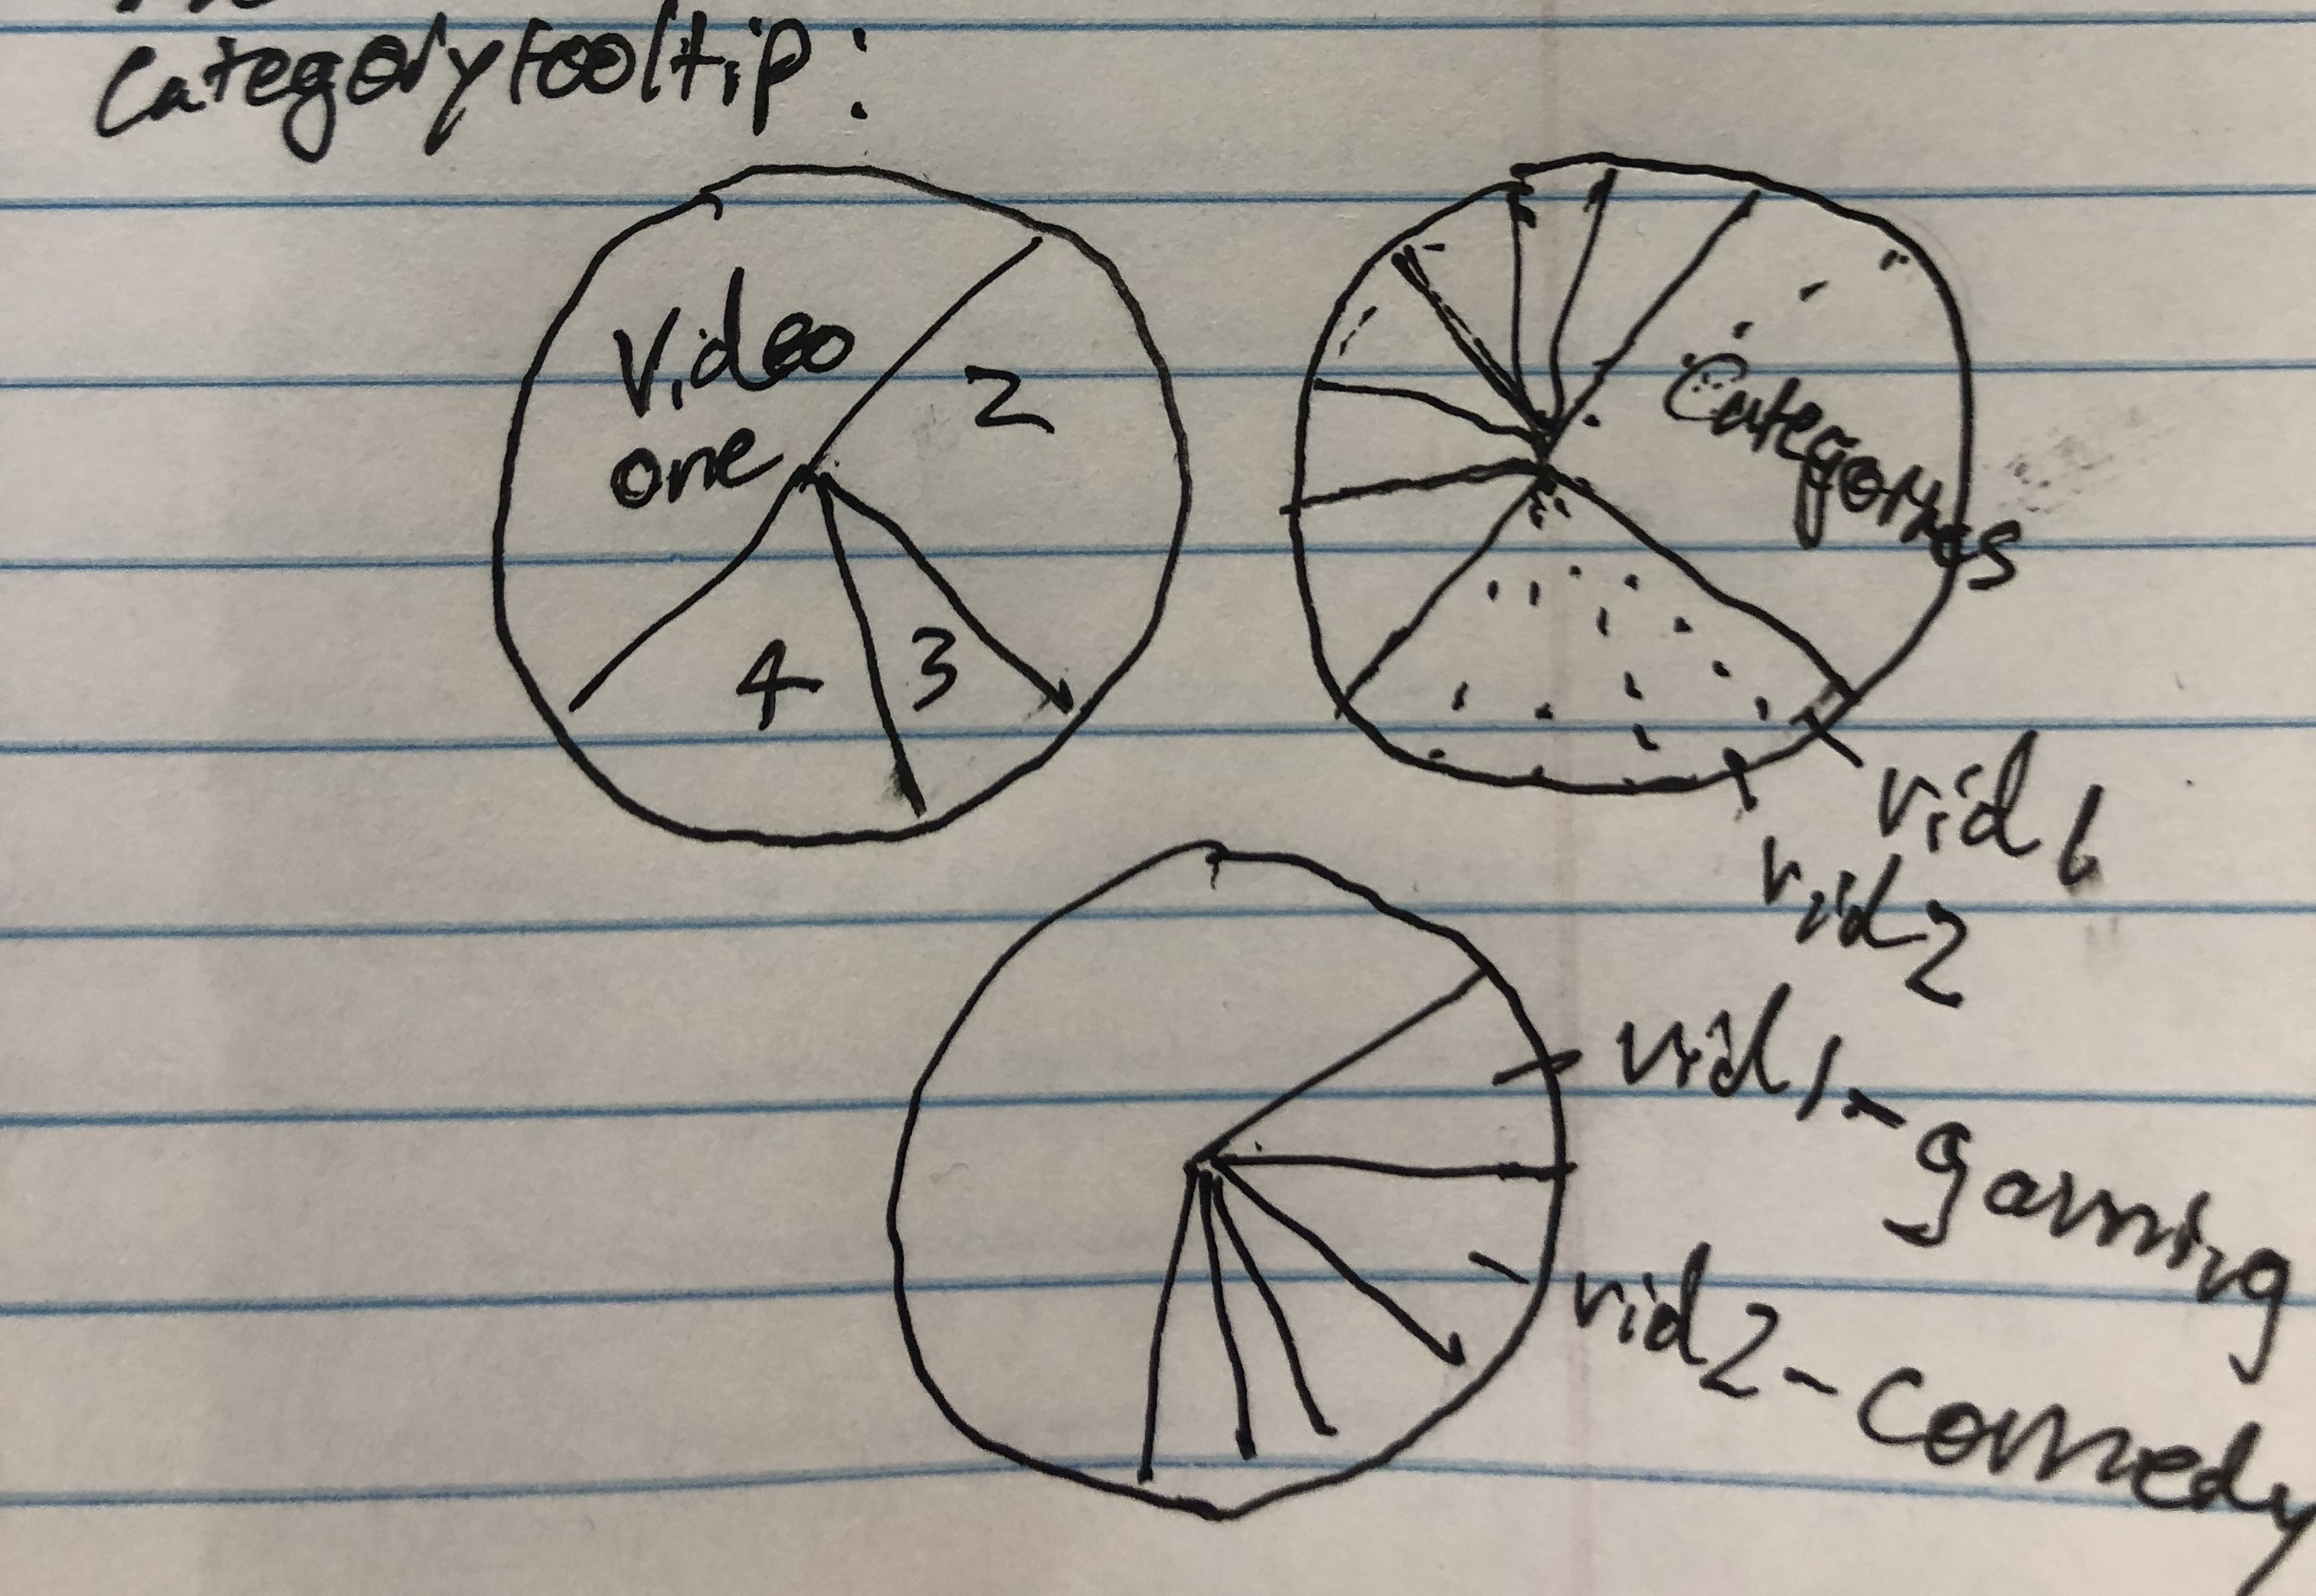 Categorytooltip:
Video
one
2
3
4
Categories
vid1
vid2
vid1-gaming
vid2-comedy